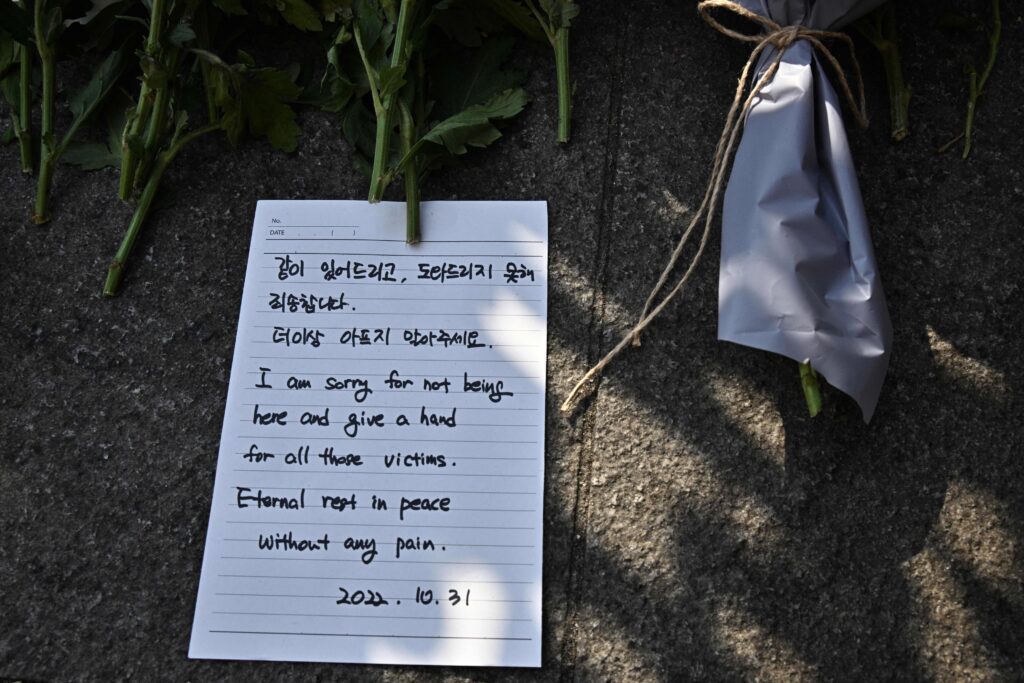 No.
DATE . . ( )
같이 있어드리고, 도와드리지 못해
죄송합니다.
더이상 아프지 말아주세요.
I am sorry for not being
here and give a hand
for all those victims.
Eternal rest in peace
without any pain.
2022. 10. 31